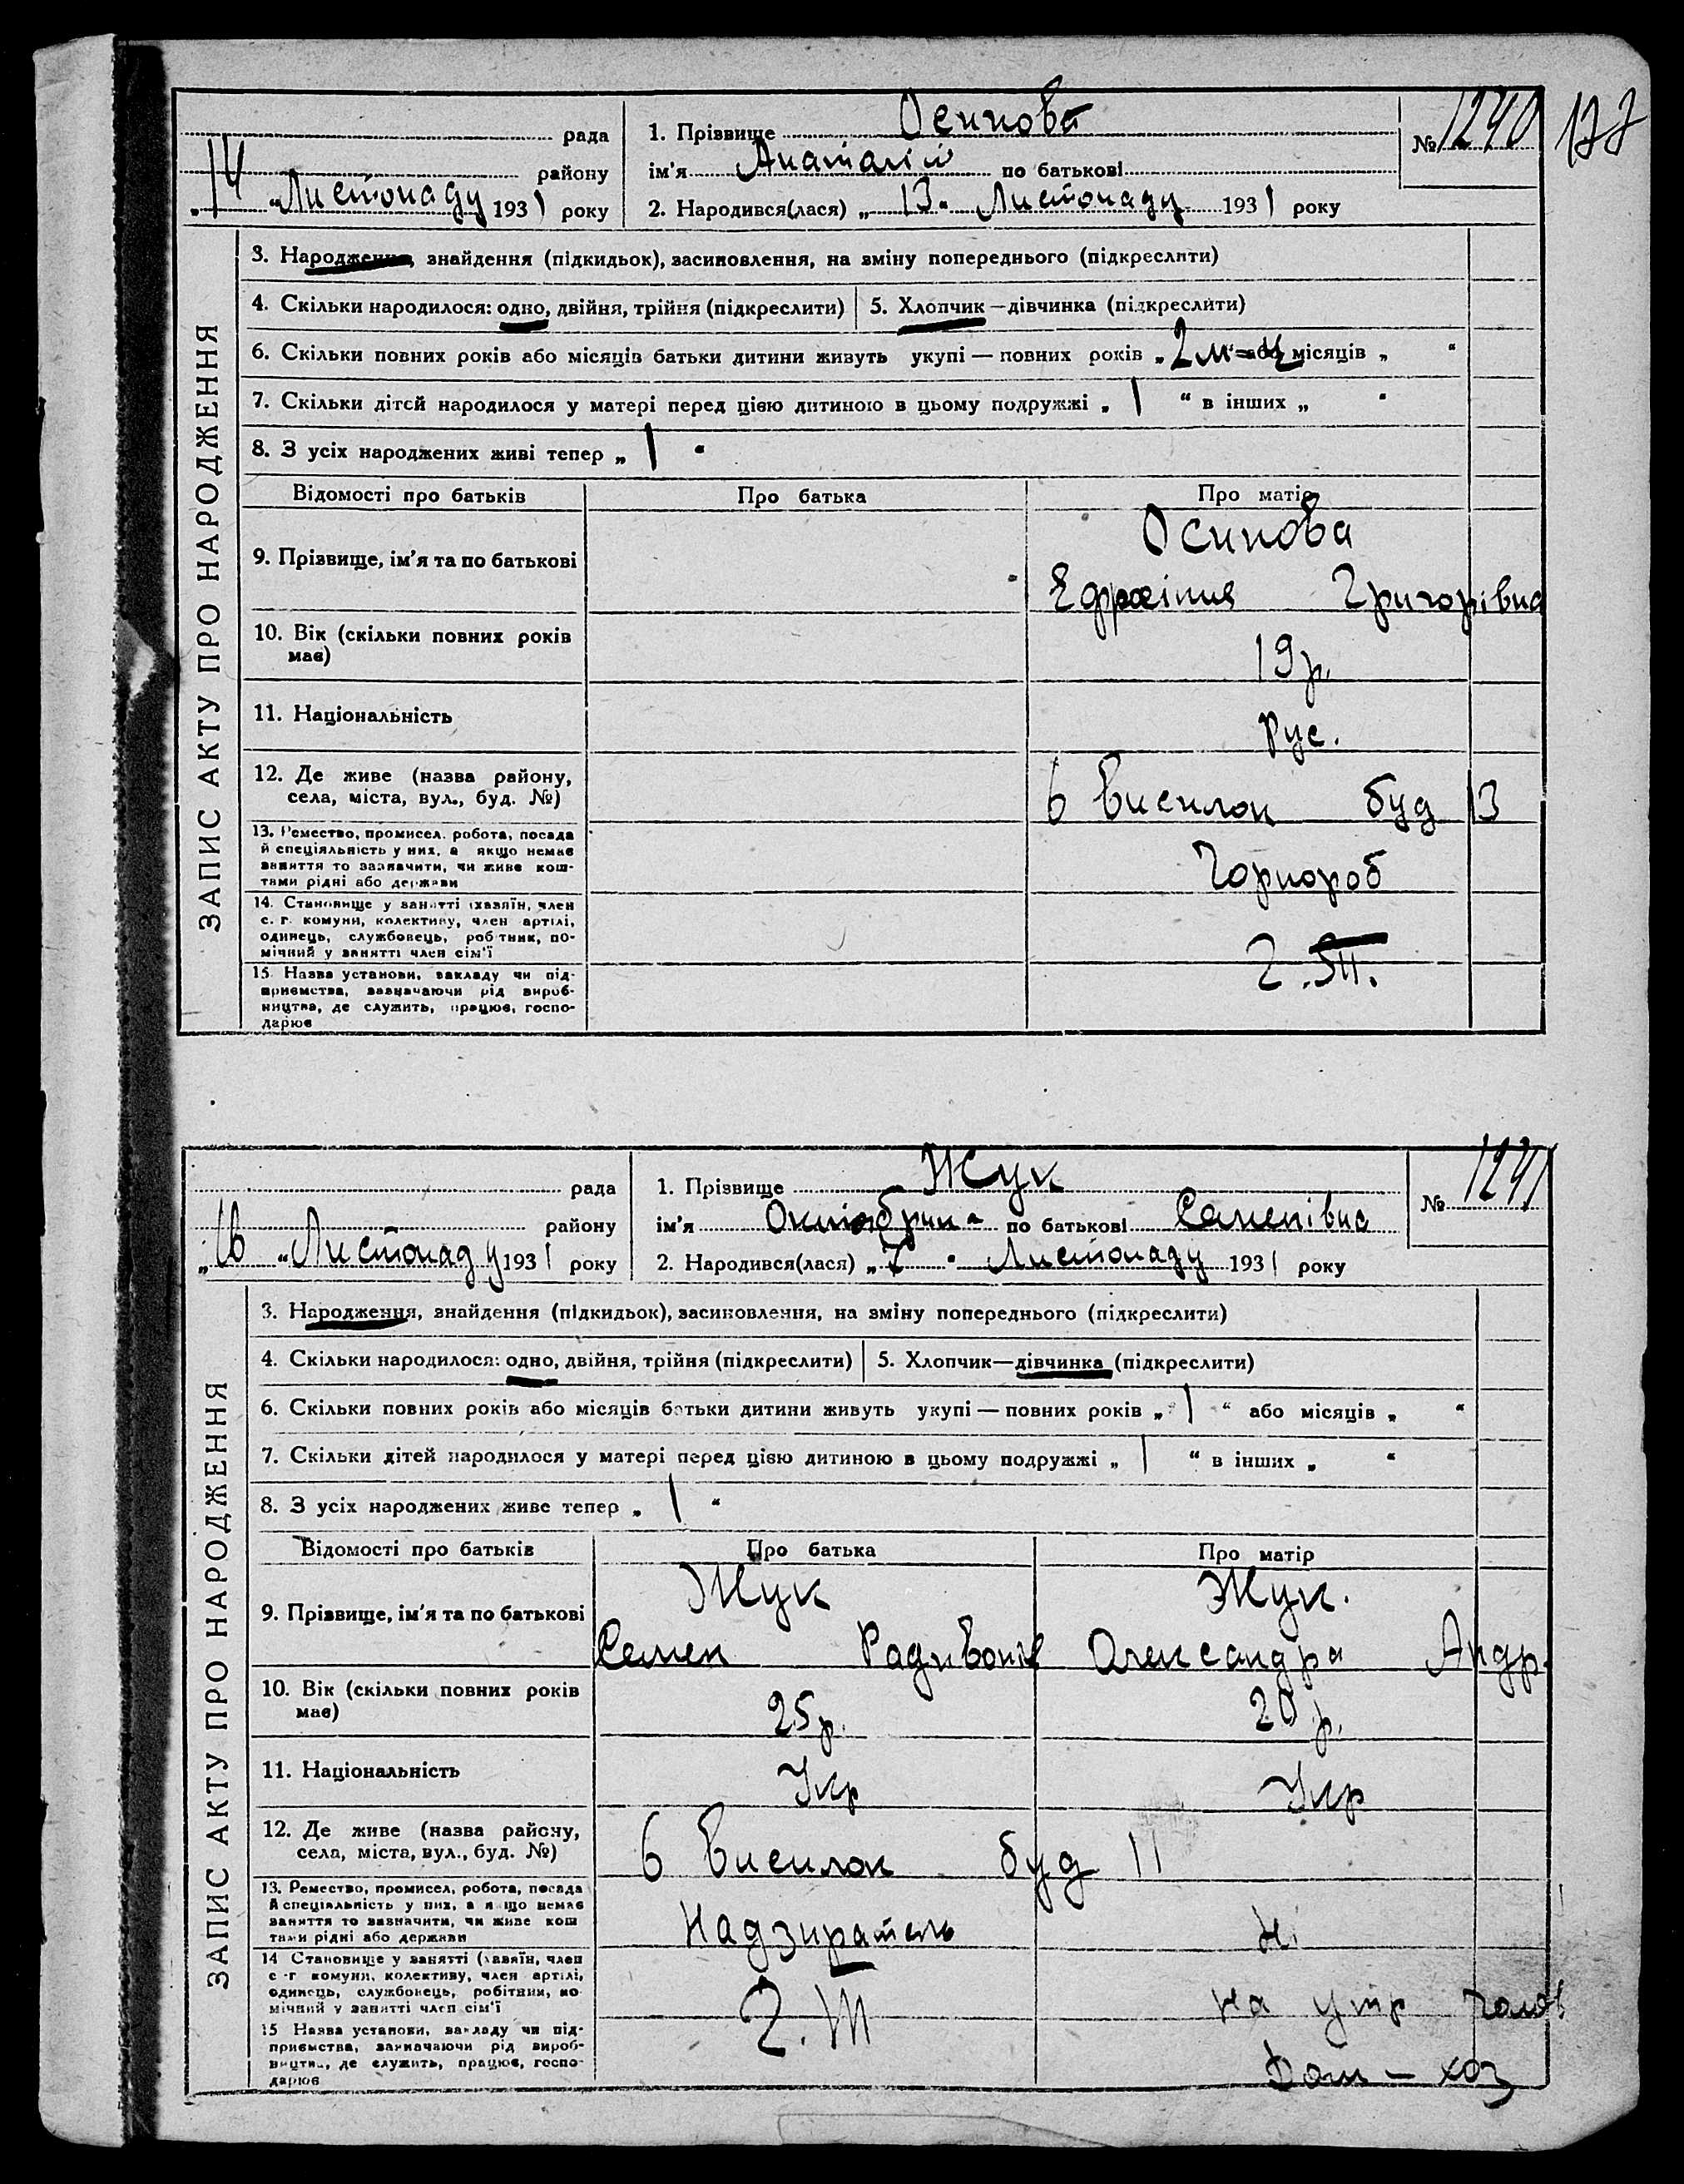 рада
1. Прізвище Осипова
№ 1240
177
району
ім'я Анатолій по батькові
14 "Листопаду 1931 року
2. Народився(лася) „13" Листопаду 1931 року
ЗАПИС АКТУ ПРО НАРОДЖЕННЯ
3. Народження, знайдення (підкидьок), засиновлення, на зміну попереднього (підкреслити)
4. Скільки народилося: одно, двійня, трійня (підкреслити)
5. Хлопчик—дівчинка (підкреслити)
6. Скільки повних років або місяців батьки дитини живуть укупі — повних років „2 м-ц або місяців „ "
7. Скільки дітей народилося у матері перед цією дитиною в цьому подружжі „ 1 " в інших „ "
8. З усіх народжених живі тепер „ 1 "
Відомості про батьків
Про батька
Про матір
9. Прізвище, ім'я та по батькові
Осипова
Ефросінія Григорівна
10. Вік (скільки повних років
має)
19 р.
11. Національність
Рус.
12. Де живе (назва району,
села, міста, вул., буд. №)
6 висилок буд 13
13. Ремество, промисел, робота, посада
й спеціяльність у них, а якщо немає
заняття то зазначити, чи живе кош-
тами рідні або держави
Чорнороб
14. Становище у занятті (хазяїн, член
с. г. комуни, колективу, член артілі,
одинець, службовець, робітник, по-
мічний у занятті член сім'ї
15. Назва установи, закладу чи під-
приємства, зазначаючи рід вироб-
ництва, де служить, працює, госпо-
дарює
рада
1. Прізвище Жук
№ 1241
району
ім'я Октябрина по батькові Семенівна
„16 "Листопаду 1931 року
2. Народився(лася) „7" Листопаду 1931 року
ЗАПИС АКТУ ПРО НАРОДЖЕННЯ
3. Народження, знайдення (підкидьок), засиновлення, на зміну попереднього (підкреслити)
4. Скільки народилося: одно, двійня, трійня (підкреслити)
5. Хлопчик—дівчинка (підкреслити)
6. Скільки повних років або місяців батьки дитини живуть укупі — повних років „ 1 " або місяців „ "
7. Скільки дітей народилося у матері перед цією дитиною в цьому подружжі „ 1 " в інших „ "
8. З усіх народжених живе тепер „ 1 "
Відомості про батьків
Про батька
Про матір
9. Прізвище, ім'я та по батькові
Жук
Семен Радивонів
Жук.
Олександра Андр.
10. Вік (скільки повних років
має)
25 р.
20 р.
11. Національність
Укр
Укр
12. Де живе (назва району,
села, міста, вул., буд. №)
6 висилок буд 11
13. Ремество, промисел, робота, посада
й спеціяльність у них, а якщо немає
заняття то зазначити, чи живе кош
тами рідні або держави
Надзиратель
Ні
14 Становище у занятті (хазяїн, член
с -г комуни, колективу, член артілі,
одинець, службовець, робітник, по
мічний у занятті член сім'ї
на утр чолов
15 Назва установи, закладу чи під-
приємства, зазначаючи рід вироб-
ництва, де служить, працює, госпо-
дарює
Дом — хоз